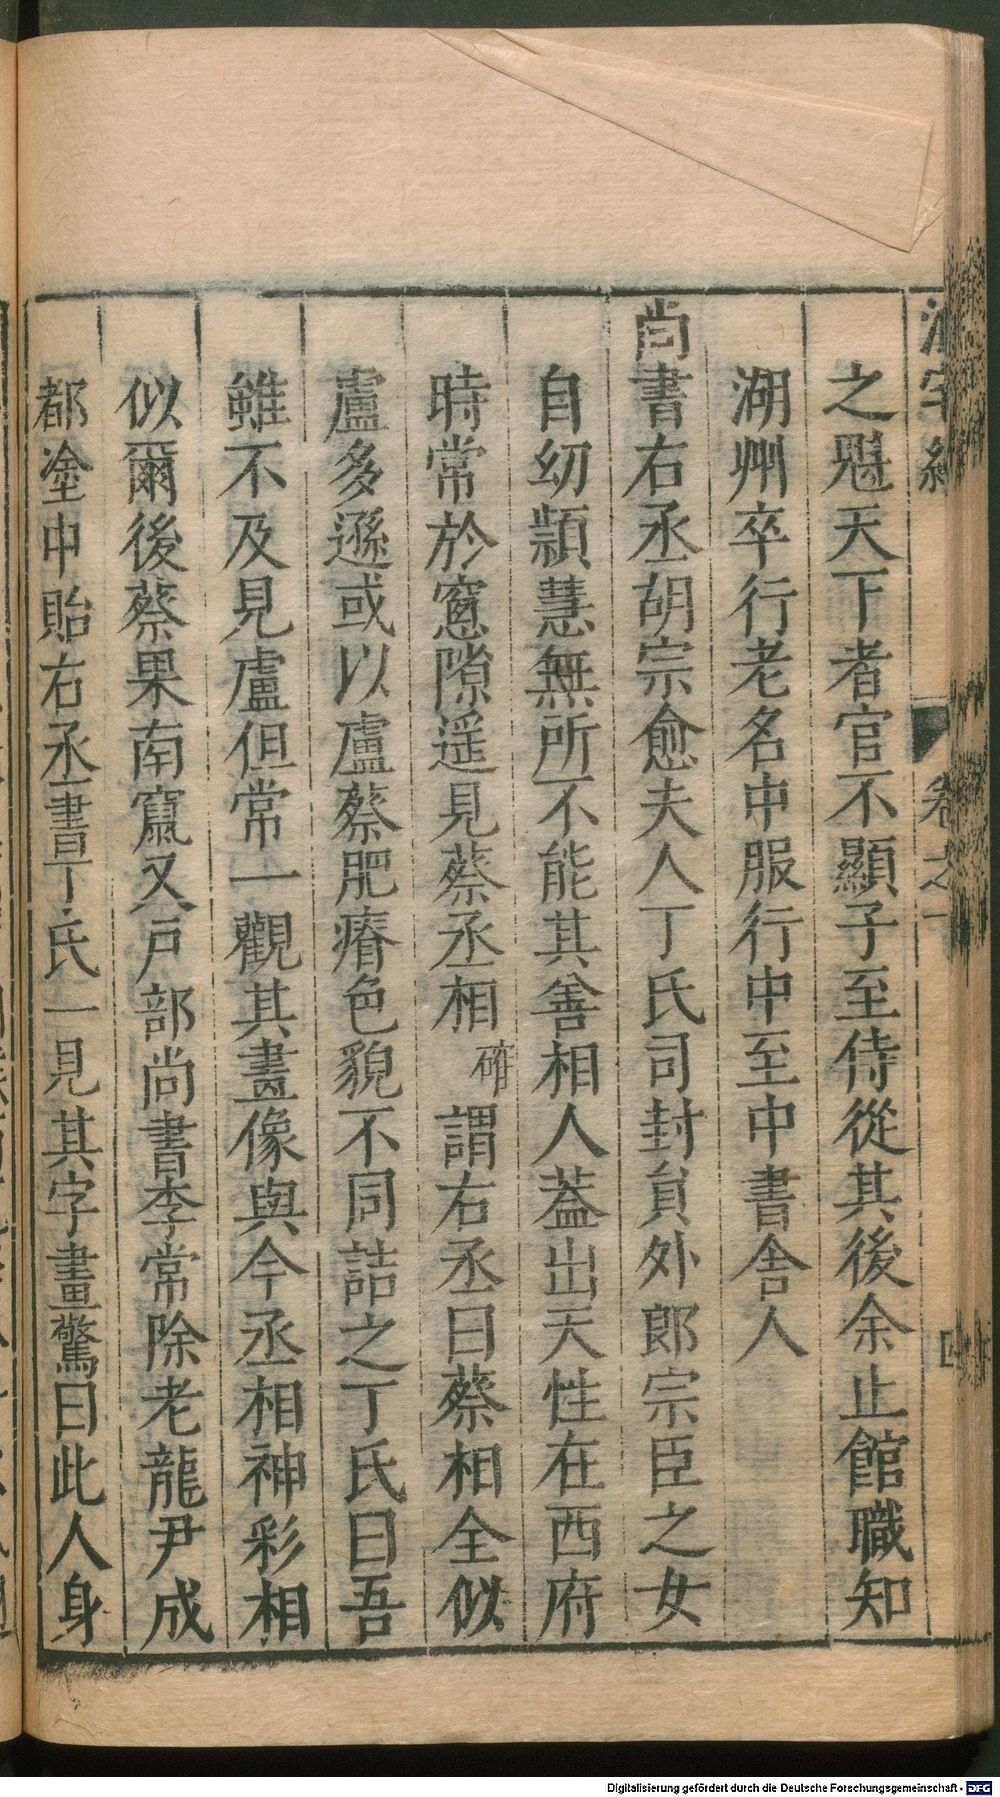 卷之一
之魁天下者官不顯子至侍從其後余止館職知
湖州卒行老名中服行中至中書舍人
尚書右丞胡宗愈夫人丁氏司封貟外郎宗臣之女
自幼頴慧無所不能其善相人蓋出天性在西府
時常於窻隙遥見蔡丞相確謂右丞曰蔡相全似
盧多遜或以盧蔡肥瘠色貌不同詰之丁氏曰吾
雖不及見盧但常一觀其畫像與今丞相神彩相
似爾後蔡果南竄又户部尚書李常除老龍尹成
都塗中貽右丞書丁氏一見其字畫驚曰此人身
Digitalisierung gefördert durch die Deutsche Forschungsgemeinschaft - DFG